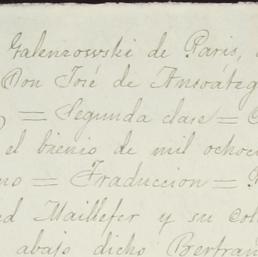 Galenzowski de Paris,
Don José de Ansoáteg
= Segunda clase =
el bienio de mil ochoc
no = Traduccion =
ed Maillefer y su col
abajo dicho Bertran